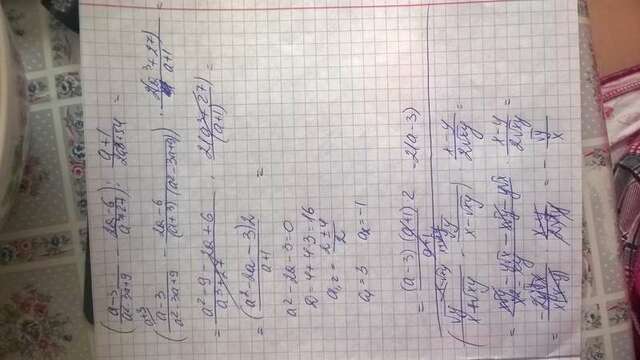 (a-3/a²-3a+9 - 2a-6/a³+27) : a+1/2a³+54 =
(a-3/a²-3a+9 - 2a-6/(a+3)(a²-3a+9)) · 2(a³+27)/a+1 =
= a²-9-2a+6/a³+27 · 2(a³+27)/(a+1) =
= (a²-2a-3)2/a+1 =
a²-2a-3=0
D=4+4·3=16
a₁,₂ = 2±4/2
a₁=3 a₂=-1
= (a-3)(a+1)·2/a+1 = 2(a-3)
(√y/x+√xy - √y/x-√xy) · x-y/2√xy =
· x-y/2√xy =
= - √y/x